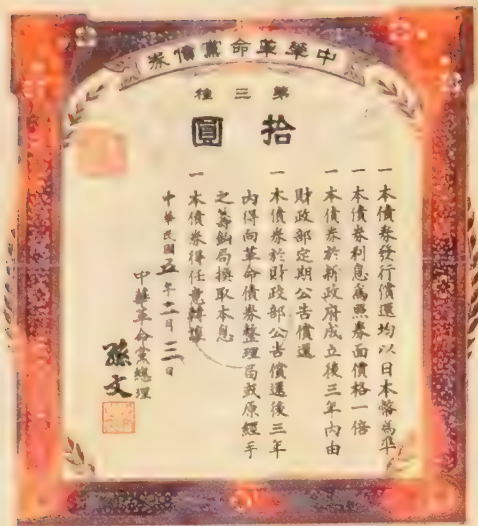 中華革命黨債券
第三種
拾圓
一本債券發行償還均以日本幣為準
一本債券利息為照券面價格一倍
一本債券於新政府成立後三年內由
財政部定期公告償還
一本債券於財政部公告償還後三年
內得向革命債券整理局或原經手
之籌餉局換取本息
一本債券得任意轉讓
中華民國五年二月三日
中華革命黨總理
孫文